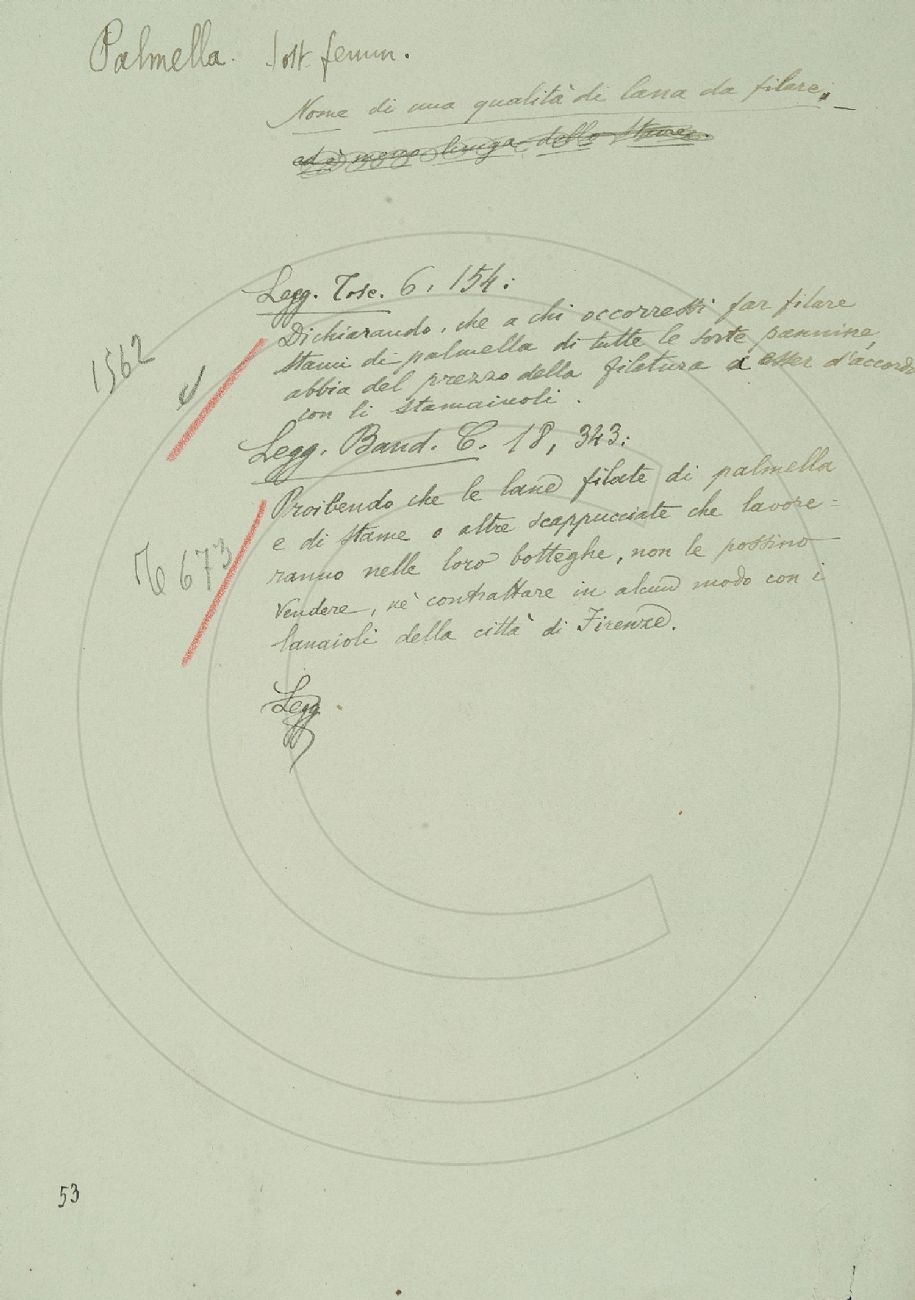 Palmella. Sost. femm.
Nome di una qualità di lana da filare.
ed è meno lunga dello stame.
Legg. Tosc. 6, 154:
Dichiarando, che a chi occorressi far filare
stami di palmella di tutte le sorte pannine,
1562
abbia del prezzo della filatura a esser d'accordo
con li stamaiuoli.
Legg. Band. C. 18, 343:
Proibendo che le lane filate di palmella
e di stame o altre scappucciate che lavore=
673
ranno nelle loro botteghe, non le possino
vendere, nè contrattare in alcun modo con i
lanaioli della città di Firenze.
Legg
53